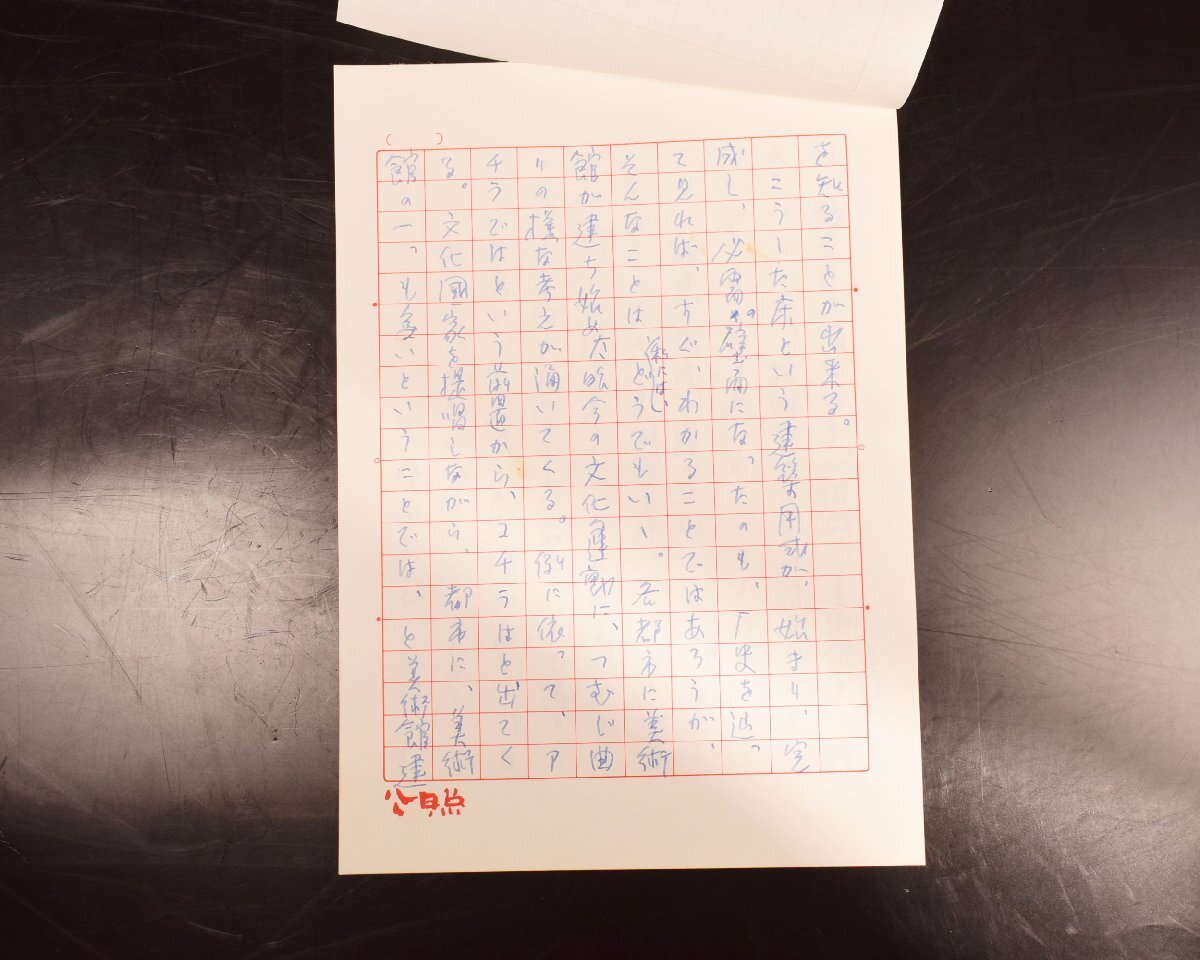 を知ることが出来る。
こうした床という建築用式が、始まり、完
成し、必需の壁面になったのも、歴史を辿っ
て見れば、すぐ、わかることではあろうが、
そんなことは僕にはどうでもいゝ。各都市に美術
館が建ち始めた昨今の文化運動に、つむじ曲
りの様な考えが涌いてくる。例に依って、ア
チラではという筋道から、コチラはと出てく
る。文化国家を提唱しながら、都市に、美術
館の一つも無いということでは、と美術館建